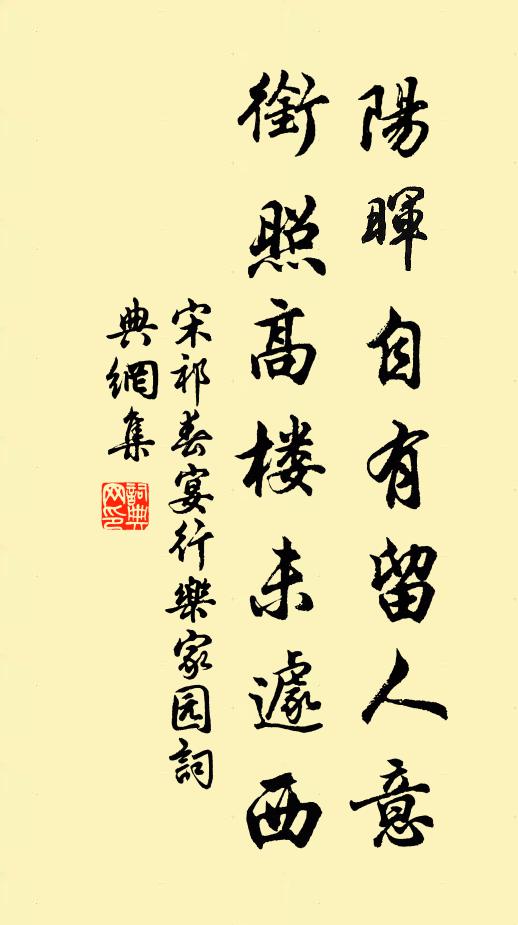 陽暉自有留人意
銜照高楼未遽西
宋祁春宴行樂家园詞
典網集
詞典网印